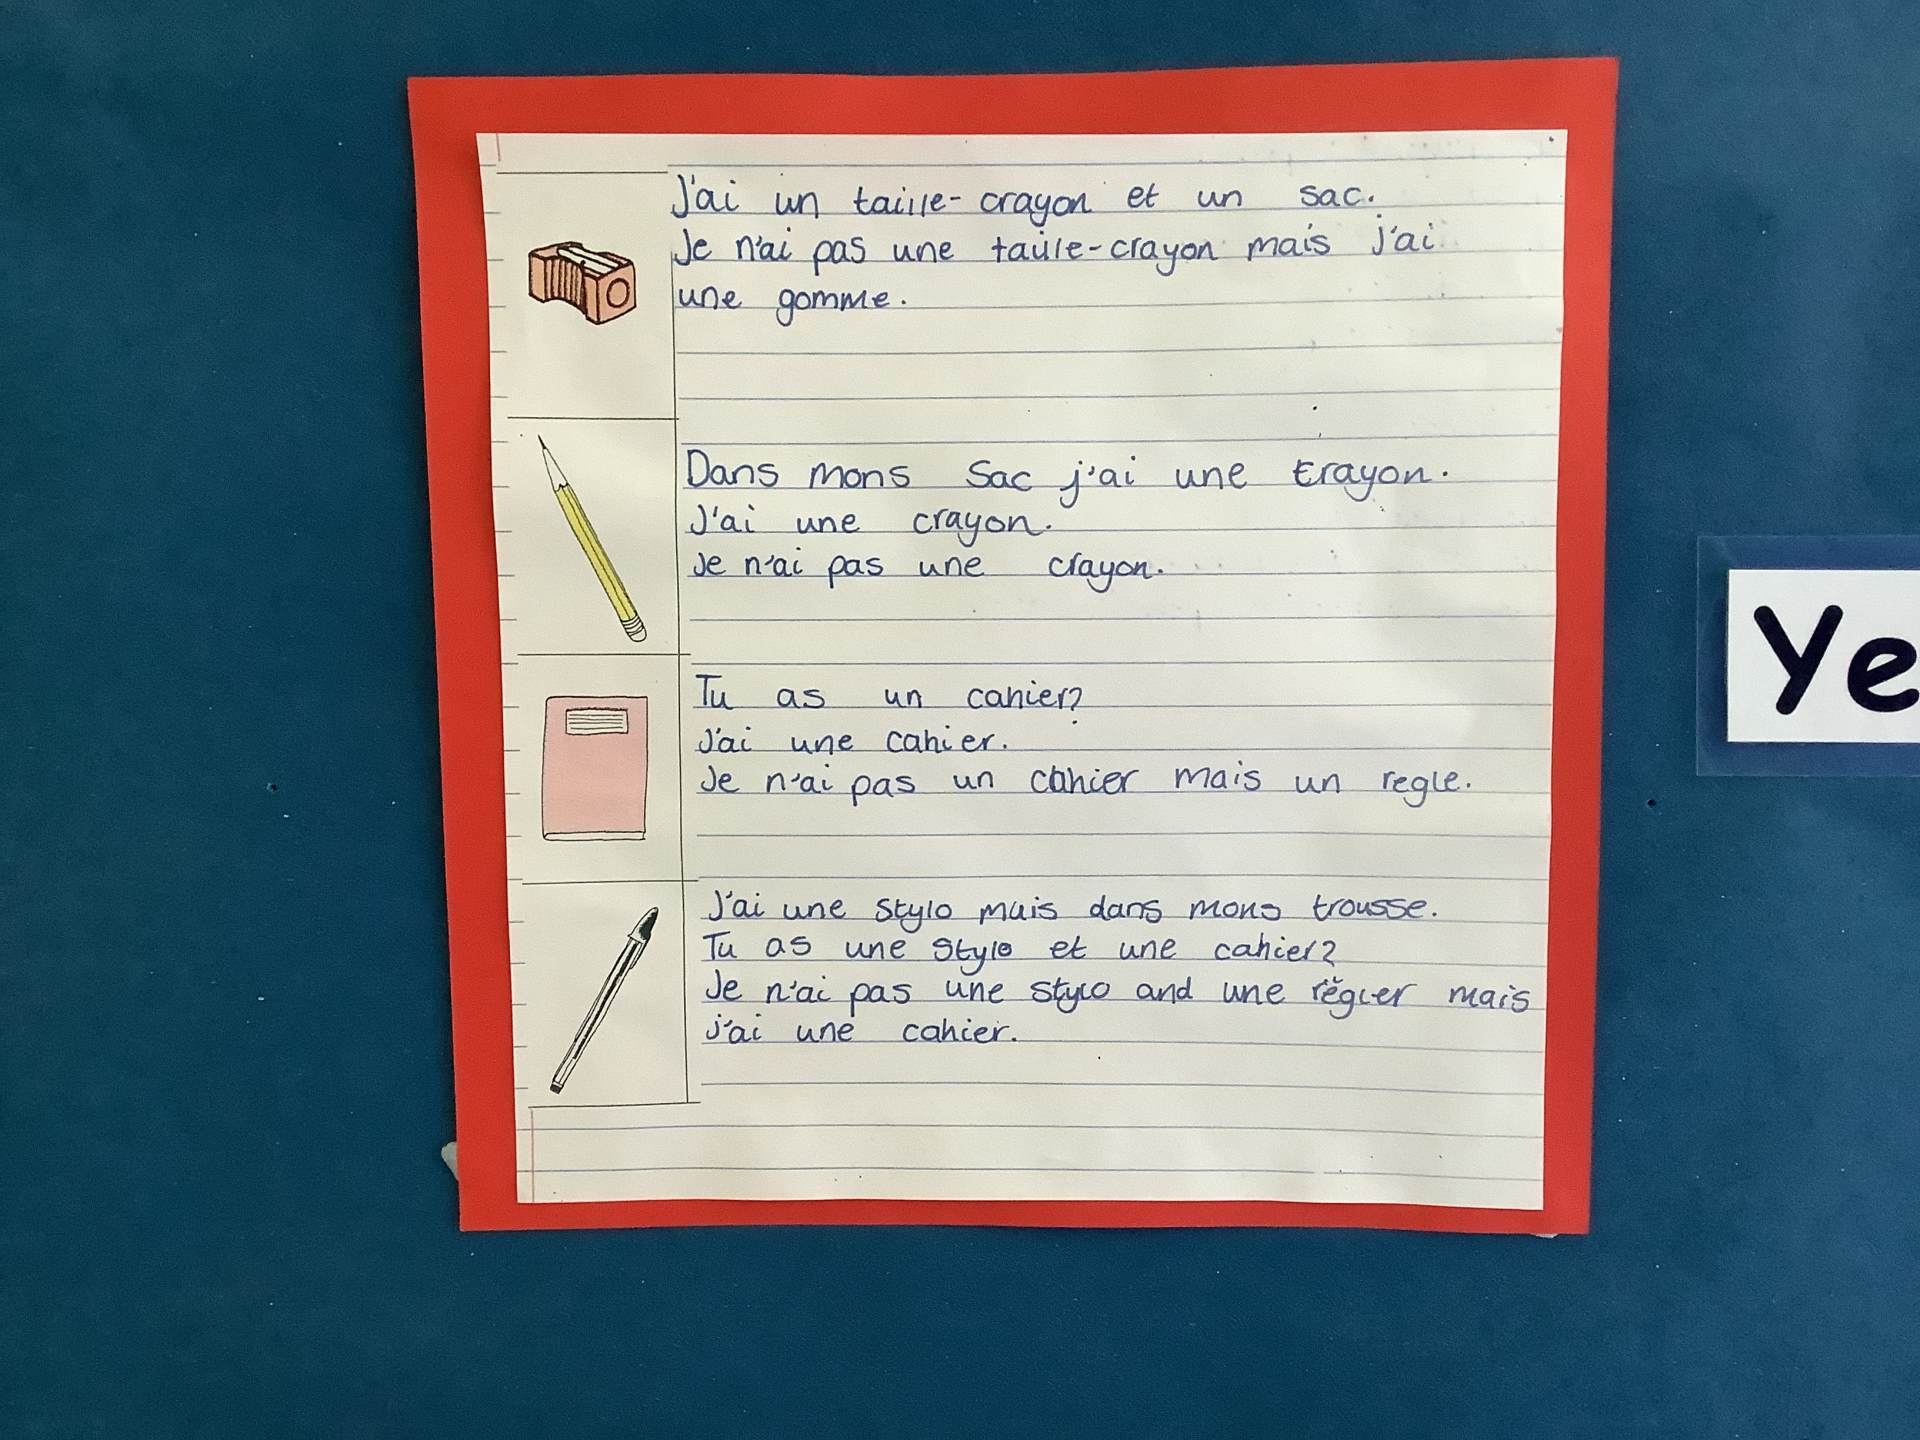 J'ai un taille-crayon et un sac.
Je n'ai pas une taille-crayon mais j'ai
une gomme.
Dans mons Sac j'ai une crayon.
J'ai une crayon.
Je n'ai pas une crayon.
Tu as un cahier?
J'ai une cahier.
Je n'ai pas un cahier mais un regle.
J'ai une stylo mais dans mons trousse.
Tu as une stylo et une cahier?
Je n'ai pas une stylo and une règler mais
j'ai une cahier.
Ye